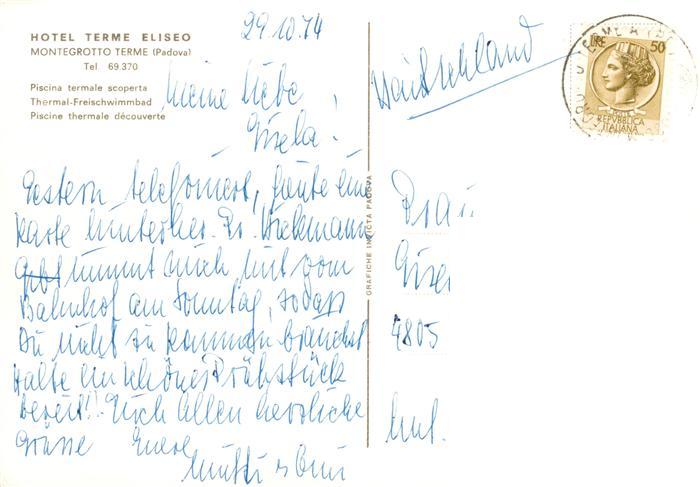 HOTEL TERME ELISEO
MONTEGROTTO TERME (Padova)
Tel. 69.370
Piscina termale scoperta
Thermal-Freischwimmbad
Piscine thermale découverte
29.10.74
Meine liebe
Gisela!
Gestern telefoniert, heute eine
Karte hinterher. Dr. Wiekmann
nimmt mich mit vom
Bahnhof am Sonntag, sodass
Du nicht zu kommen brauchst
Halte ein schönes Frühstück
bereit!! Euch Allen herzliche
Grüsse Eure
Mutti & Omi
GRAFICHE INVICTA PADOVA
Deutschland
LIRE 50
REPVBBLICA
ITALIANA
TERME
Frau
Gisel
4805